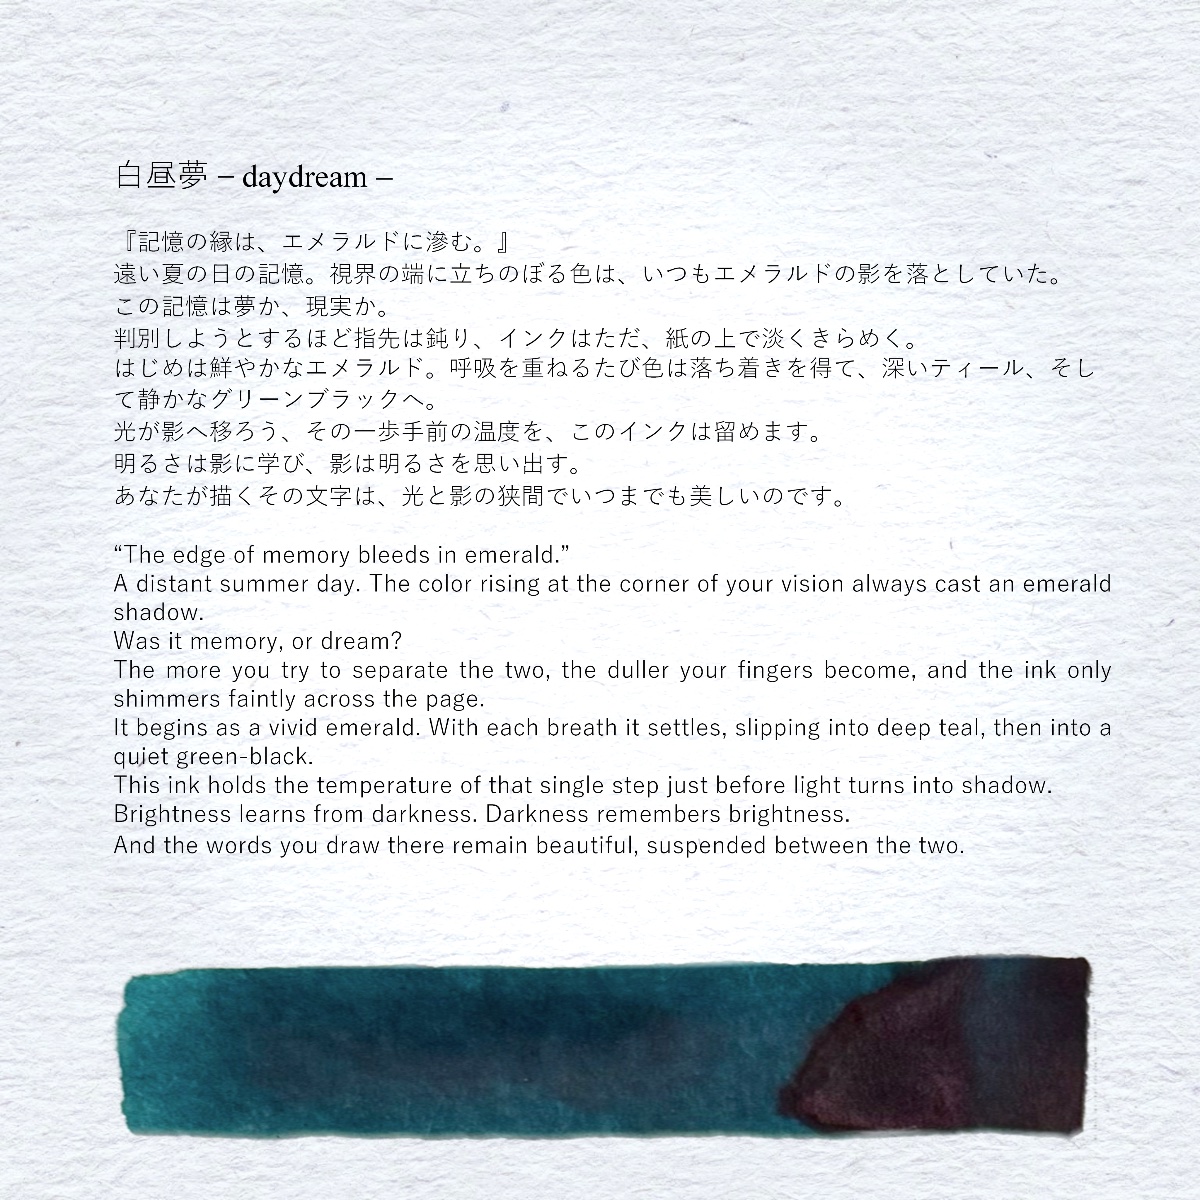 白昼夢 – daydream –
『記憶の縁は、エメラルドに滲む。』
遠い夏の日の記憶。視界の端に立ちのぼる色は、いつもエメラルドの影を落としていた。
この記憶は夢か、現実か。
判別しようとするほど指先は鈍り、インクはただ、紙の上で淡くきらめく。
はじめは鮮やかなエメラルド。呼吸を重ねるたび色は落ち着きを得て、深いティール、そし
て静かなグリーンブラックへ。
光が影へ移ろう、その一歩手前の温度を、このインクは留めます。
明るさは影に学び、影は明るさを思い出す。
あなたが描くその文字は、光と影の狭間でいつまでも美しいのです。
“The edge of memory bleeds in emerald.”
A distant summer day. The color rising at the corner of your vision always cast an emerald
shadow.
Was it memory, or dream?
The more you try to separate the two, the duller your fingers become, and the ink only
shimmers faintly across the page.
It begins as a vivid emerald. With each breath it settles, slipping into deep teal, then into a
quiet green-black.
This ink holds the temperature of that single step just before light turns into shadow.
Brightness learns from darkness. Darkness remembers brightness.
And the words you draw there remain beautiful, suspended between the two.